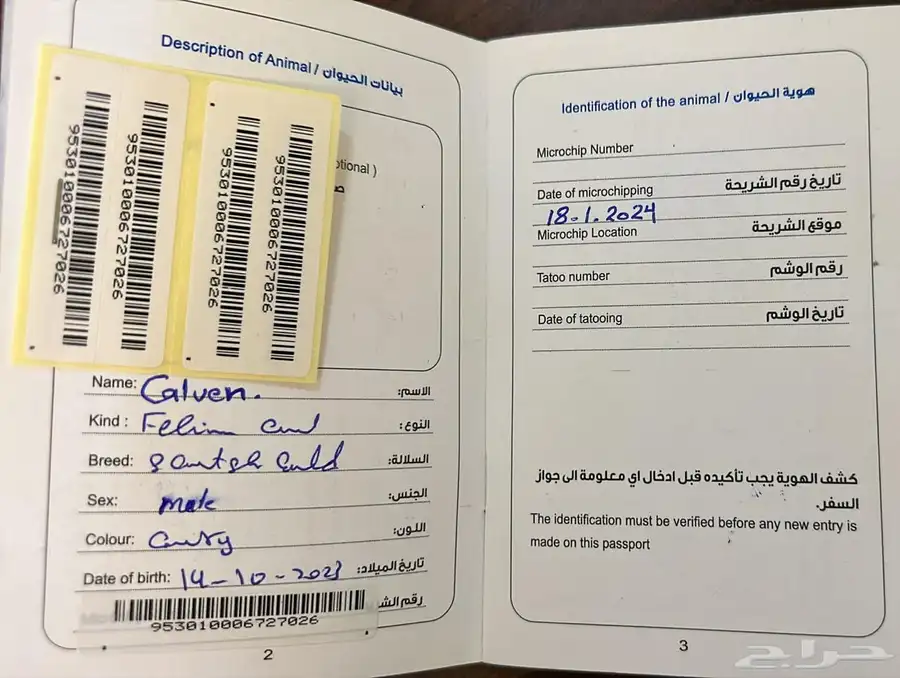 Description of Animal / بيانات الحيوان
953010006727026
953010006727026
953010006727026
953010006727026
otional )
Name: Calven. الاسم:
Kind : النوع:
Breed: السلالة:
Sex: male الجنس:
Colour: اللون:
Date of birth: 14-10-2023 تاريخ الميلاد:
رقم الش
953010006727026
2
Identification of the animal / هوية الحيوان
Microchip Number
Date of microchipping تاريخ رقم الشريحة
18.1.2024
Microchip Location موقع الشريحة
Tatoo number رقم الوشم
Date of tatooing تاريخ الوشم
كشف الهوية يجب تأكيده قبل ادخال اي معلومة الى جواز
السفر.
The identification must be verified before any new entry is
made on this passport
3
حراج